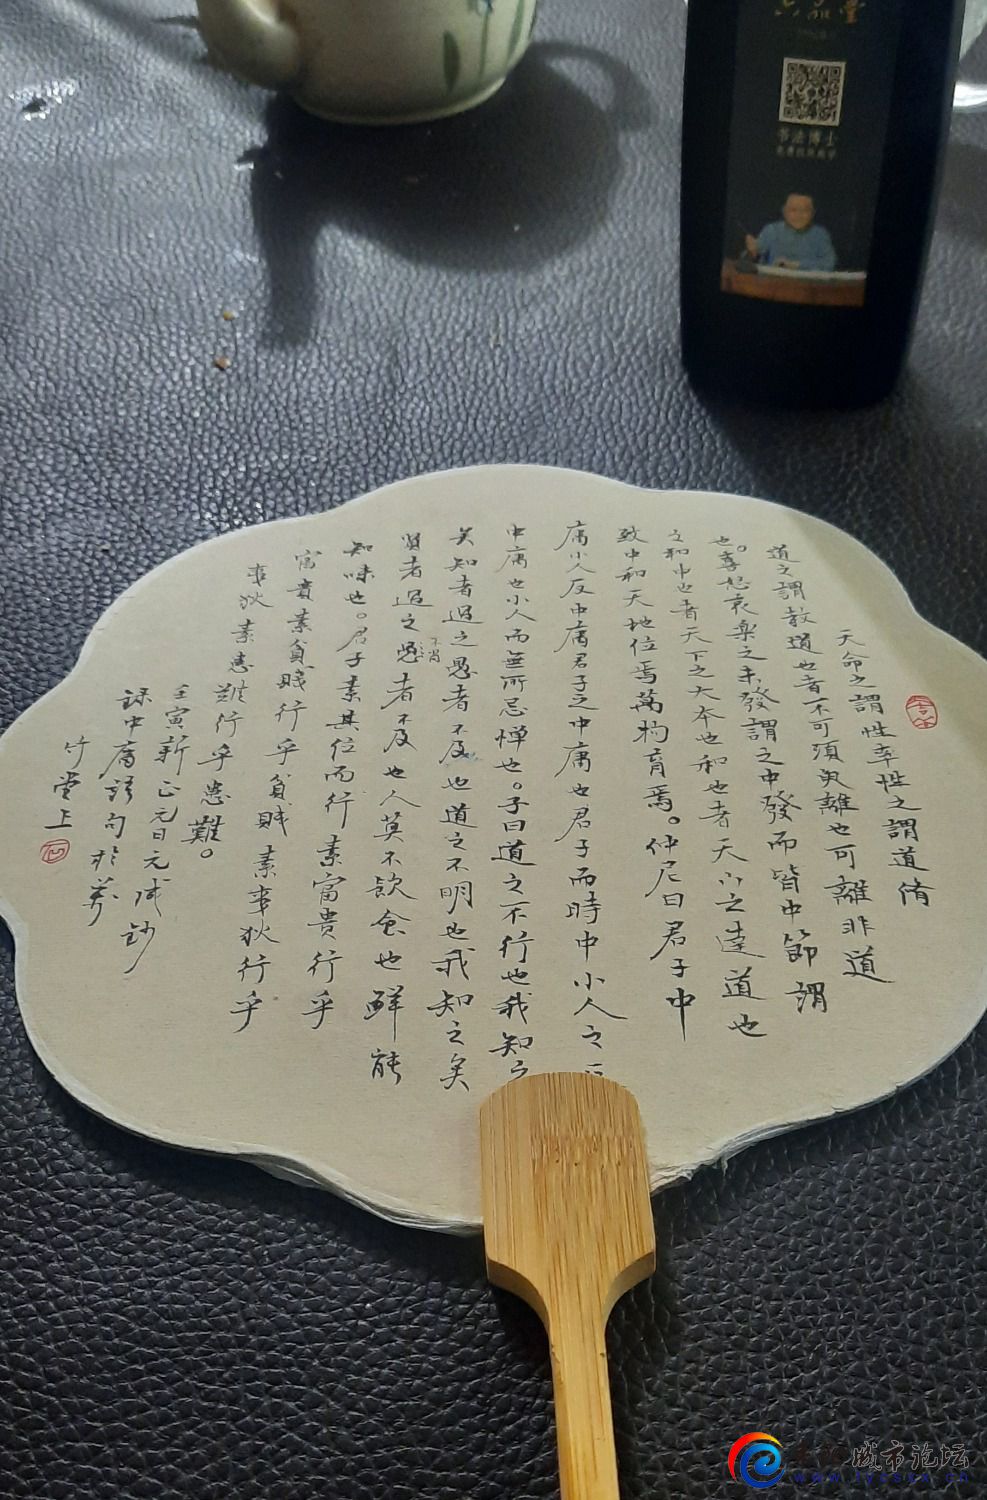 天命之謂性率性之謂道脩
道之謂教道也者不可須臾離也可離非道
也。喜怒哀樂之未發謂之中發而皆中節謂
之和中也者天下之大本也和也者天下之達道也
致中和天地位焉萬物育焉。仲尼曰君子中
庸小人反中庸君子之中庸也君子而時中小人之
中庸也小人而無所忌憚也。子曰道之不行也我知之
矣知者過之愚者不及也道之不明也我知之矣
賢者過之愚者不及也人莫不飲食也鮮能
不肖
知味也。君子素其位而行素富貴行乎
富貴素貧賤行乎貧賤素夷狄行乎
夷狄素患難行乎患難。
壬寅新正元日元
錄中庸語句於
竹堂上
书法博士
城市论坛